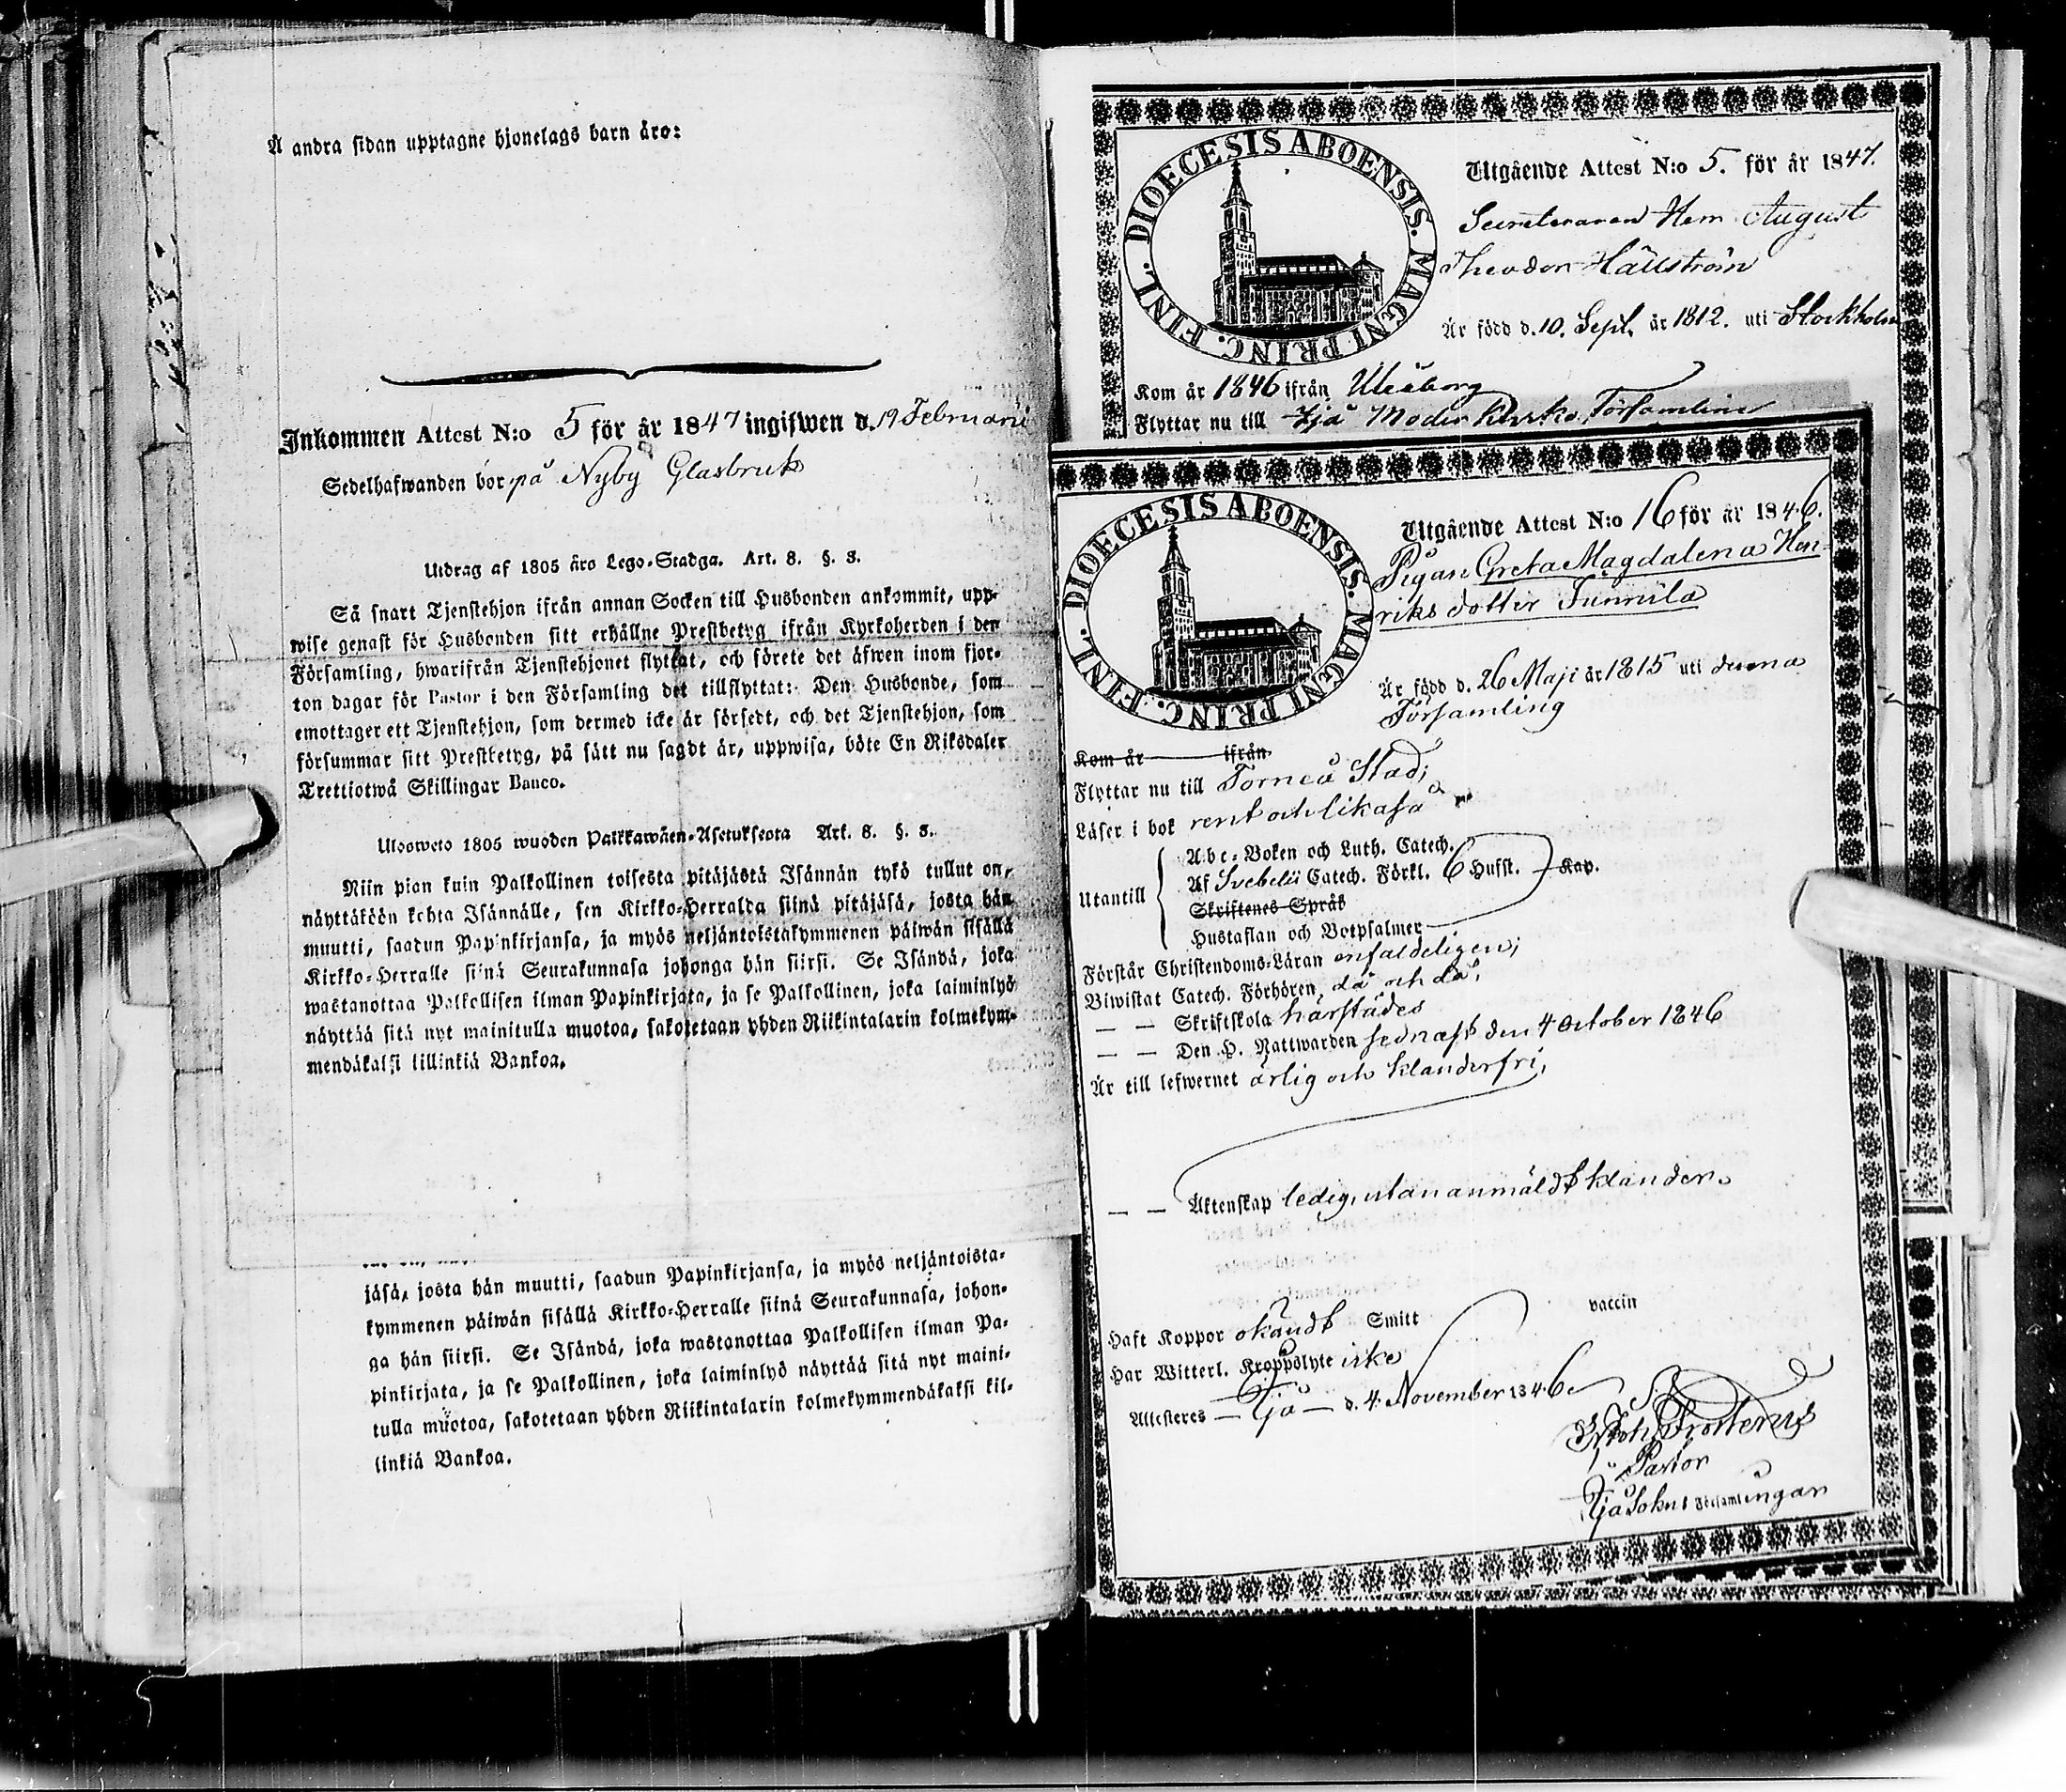 Å andra sidan upptagne hjonelags barn äro:
Inkommen Attest N:o 5 för år 1847 ingifwen d. 19 Februarii
Sedelhafwanden bor på Nyby Glasbruk
Utdrag af 1805 års Lego-Stadga. Art. 8. §. 3.
Så snart Tjenstehjon ifrån annan Socken till Husbonden ankommit, upp-
wise genast för Husbonden sitt erhållne Prestbetyg ifrån Kyrkoherden i den
Församling, hwarifrån Tjenstehjonet flyttat, och förete det äfwen inom fjor-
ton dagar för Pastor i den Församling det tillflyttat: Den Husbonde, som
emottager ett Tjenstehjon, som dermed icke är försedt, och det Tjenstehjon, som
försummar sitt Prestbetyg, på sätt nu sagdt är, uppwisa, böte En Riksdaler
Trettiotwå Skillingar Banco.
Ulosweto 1805 wuoden Palkkawäen-Asetuksesta Art. 8. §. 3.
Niin pian kuin Palkollinen toisesta pitäjästä Isännän tykö tullut on,
näyttäköön kohta Isännälle, sen Kirkko-Herralda siinä pitäjäsä, josta hän
muutti, saadun Papinkirjansa, ja myös neljäntoistakymmenen päiwän sisällä
Kirkko-Herralle siinä Seurakunnasa johonga hän siirsi. Se Isändä, joka
wastanottaa Palkollisen ilman Papinkirjata, ja se Palkollinen, joka laiminlyö
näyttää sitä nyt mainitulla muotoa, sakotetaan yhden Riikintalarin kolmekym-
mendäkaksi killinkiä Bankoa.
jäsä, josta hän muutti, saadun Papinkirjansa, ja myös neljäntoista-
kymmenen päiwän sisällä Kirkko-Herralle siinä Seurakunnasa, johon-
ga hän siirsi. Se Isändä, joka wastanottaa Palkollisen ilman Pa-
pinkirjata, ja se Palkollinen, joka laiminlyö näyttää sitä nyt maini-
tulla muotoa, sakotetaan yhden Riikintalarin kolmekymmendäkaksi kil-
linkiä Bankoa.
DIOECESIS ABOENSIS. MAGNI PRINC. FINL.
Utgående Attest N:o 5. för år 1847.
Secreteraren Herr August
Theodor Hällström
Är född d. 10. Sept. år 1812. uti Stockholm
Kom år 1846 ifrån Uleåborg
Flyttar nu till Ijå Moder Kyrko Församling
DIOECESIS ABOENSIS. MAGNI PRINC. FINL.
Utgående Attest N:o 16 för år 1846.
Pigan Greta Magdalena Hen-
riks dotter
Är född d. 26 Maji år 1815 uti denna
Församling
Kom år ifrån
Flyttar nu till Torneå Stad;
Läser i bok rent och likaså
Utantill
Abc-Boken och Luth. Catech.
Af Svebelii Catech. Förkl. 6 Hufst. Kap.
Skriftenes Språk
Hustaflan och Botpsalmer
Förstår Christendoms-Läran enfaldeligen;
Biwistat Catech. Förhören då och då;
— — Skriftskola härstädes
— — Den H. Nattwarden sednast den 4 October 1846
Är till lefwernet ärlig och klanderfri,
— — Äktenskap ledig, utan anmäldt klander.
Haft Koppor okändt Smitt vaccin
Har Witterl. Kroppslyte icke
Attesteras — Ijå — d. 4 November 1846.
Frosterus
Pastor
Ijå Sokns Församlingar